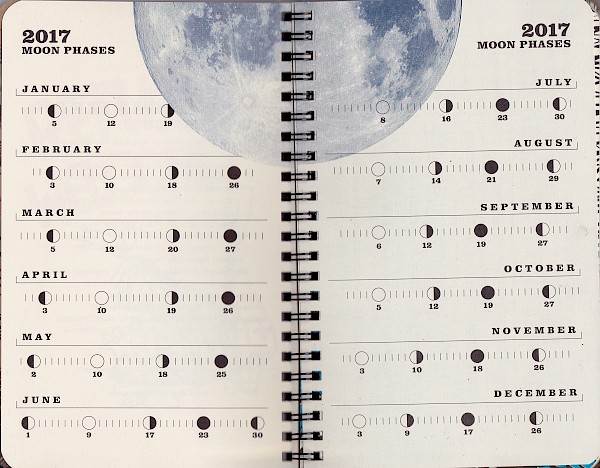 2017
MOON PHASES
JANUARY
5 12 19
FEBRUARY
3 10 18 26
MARCH
5 12 20 27
APRIL
3 10 19 26
MAY
2 10 18 25
JUNE
1 9 17 23 30
2017
MOON PHASES
JULY
8 16 23 30
AUGUST
7 14 21 29
SEPTEMBER
6 12 19 27
OCTOBER
5 12 19 27
NOVEMBER
3 10 18 26
DECEMBER
3 9 17 26